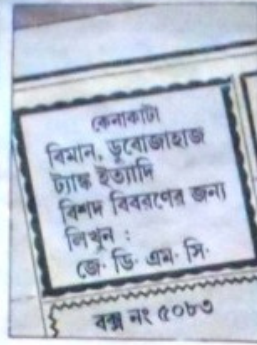 কেনাকাটা
বিমান, ডুবোজাহাজ
ট্যাঙ্ক ইত্যাদি
বিশদ বিবরণের জন্য
লিখুন :
জে· ডি· এম· সি·
বক্স নং ৫০৮৩